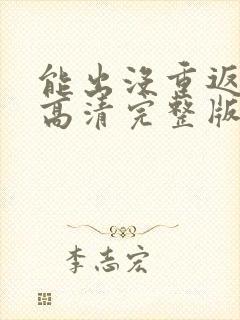 能出没重返
高清完整版
李志宏